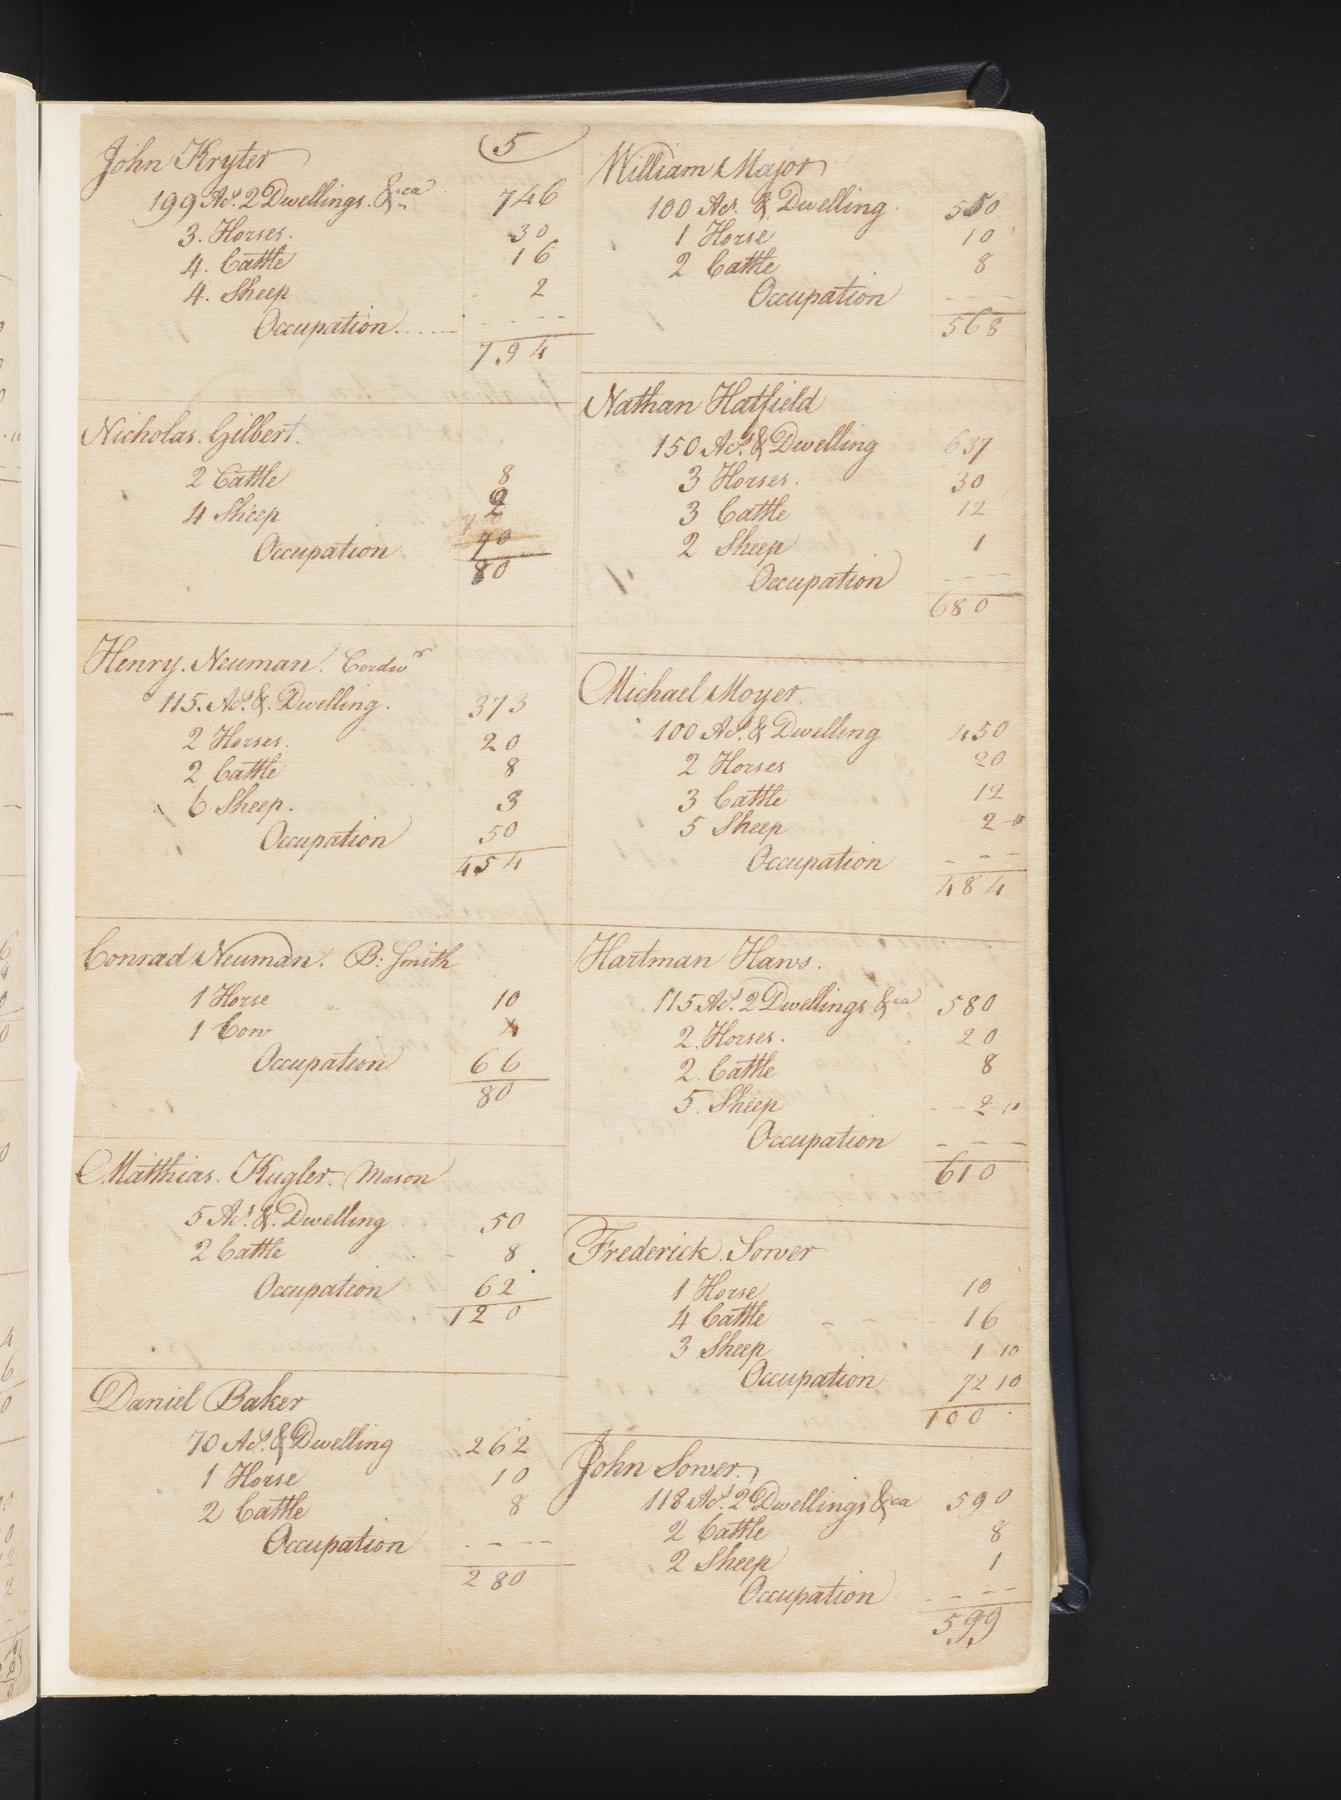 5
John Kryter
199 Acs. 2 Dwellings. &ca 746
3. Horses. 30
4. Cattle 16
4. Sheep 2
Occupation..... - - - -
794
Nicholas. Gilbert.
2 Cattle 8
4 Sheep 2
Occupation 70
80
Henry. Neuman. Cordwr
115. Acs. &. Dwelling. 373
2 Horses. 20
2 Cattle 8
6 Sheep. 3
Occupation 50
454
Conrad Neuman. B: Smith
1 Horse 10
1 Cow 4
Occupation 66
80
Matthias. Kugler. Mason
5 Acs. &. Dwelling 50
2 Cattle - 8
Occupation 62
120
Daniel Baker
70 Acs. & Dwelling 262
1 Horse 10
2 Cattle 8
Occupation - - - -
280
William Major
100 Acs. & Dwelling 550
1 Horse 10
2 Cattle 8
Occupation - - -
568
Nathan Hatfield
150 Acs. & Dwelling 637
3 Horses. 30
3 Cattle 12
2 Sheep 1
Occupation - - -
680
Michael Moyer.
100 Acs. & Dwelling 450
2 Horses 20
3 Cattle 12
5 Sheep 2-10
Occupation - - -
484
Hartman Haws.
115 Acs. 2 Dwellings &ca 580
2. Horses. 20
2. Cattle 8
5. Sheep - - 2 10
Occupation - - -
610
Frederick. Sower
1 Horse 10
4 Cattle - - - 16
3 Sheep 1 10
Occupation 72 10
100
John Sower.
118 Acs. 2 Dwellings &ca 590
2 Cattle 8
2 Sheep 1
Occupation - - -
599